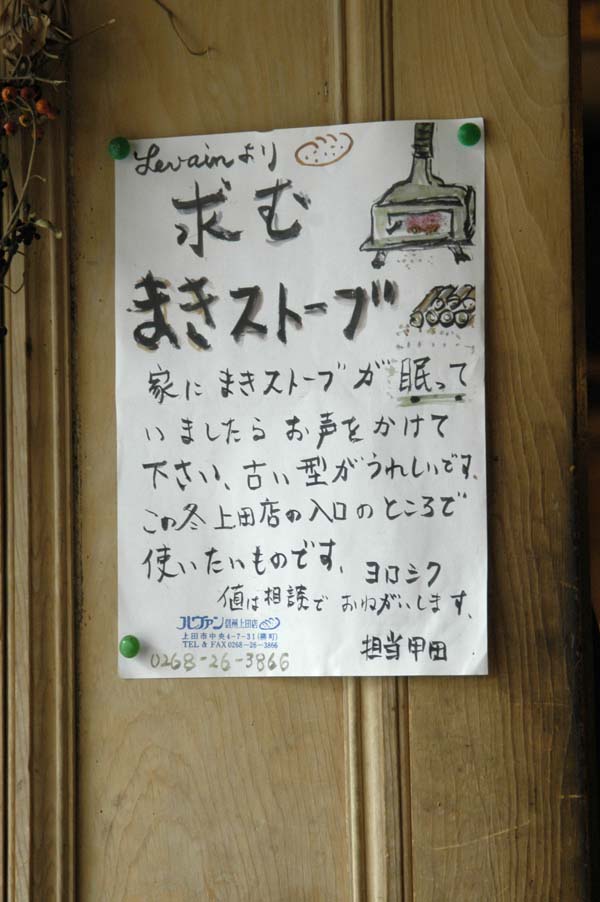 Levainより
求む
まきストーブ
家にまきストーブが眠って
いましたらお声をかけて
下さい、古い型がうれしいです、
この冬上田店の入口のところで
使いたいものです、
ヨロシク
値は相談で おねがいします、
ルヴァン 信州上田店
上田市中央4-7-31(柳町)
TEL & FAX 0268-26-3866
0268-26-3866
担当甲田